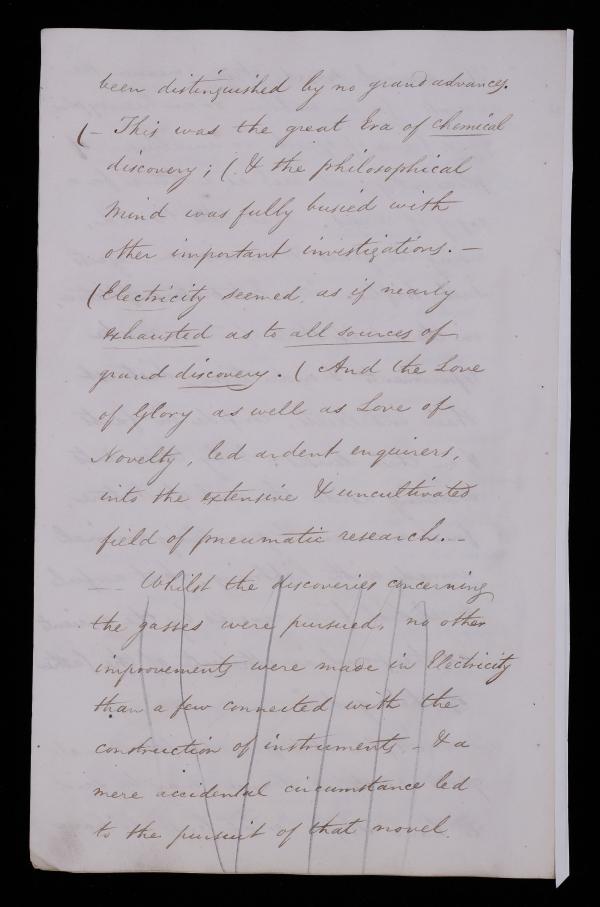 been distinguished by no grand advances.
(– This was the great Era of chemical
discovery; (& the philosophical
Mind was fully busied with
other important investigations. –
(Electricity seemed, as if nearly
exhausted as to all sources of
grand discovery. ( And the Love
of Glory as well as Love of
Novelty, led ardent enquirers,
into the extensive & uncultivated
field of pneumatic research. –
— Whilst the discoveries concerning
the gasses were pursued, no other
improvements were made in Electricity
than a few connected with the
construction of instruments – & a
mere accidental circumstance led
to the pursuit of that novel.